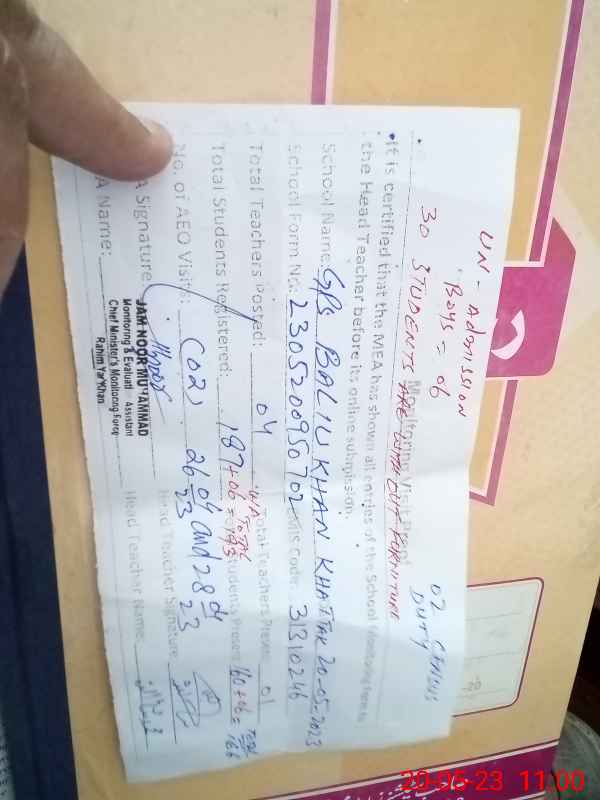 UN-Admission
Boys = 06
30 STUDENTS ARE WITH OUT FURNITURE
02 CENSUS
DUTY
Monitoring Visit Proof
It is certified that the MEA has shown all entries of the School Monitoring Form to
the Head Teacher before its online submission.
School Name: GPS BALIU KHAN KHATTAK 20-05-2023
School Form No: 2305200950702 MIS Code: 31310246
Total Teachers Posted: 04 Total Teachers Present: 01
Total Students Registered: 187+06= TOTAL 193 Students Present 160+06= TOTAL 166
No. of AEO Visits: (02) 26-04-23 and 28-04-23
A Signature Head Teacher Signature
JAM NOOR MUHAMMAD
Monitoring & Evaluati Assistant
Chief Minister's Monitoring Force
Rahim Yar Khan
A Name: Head Teacher Name:
20-05-23 11:00